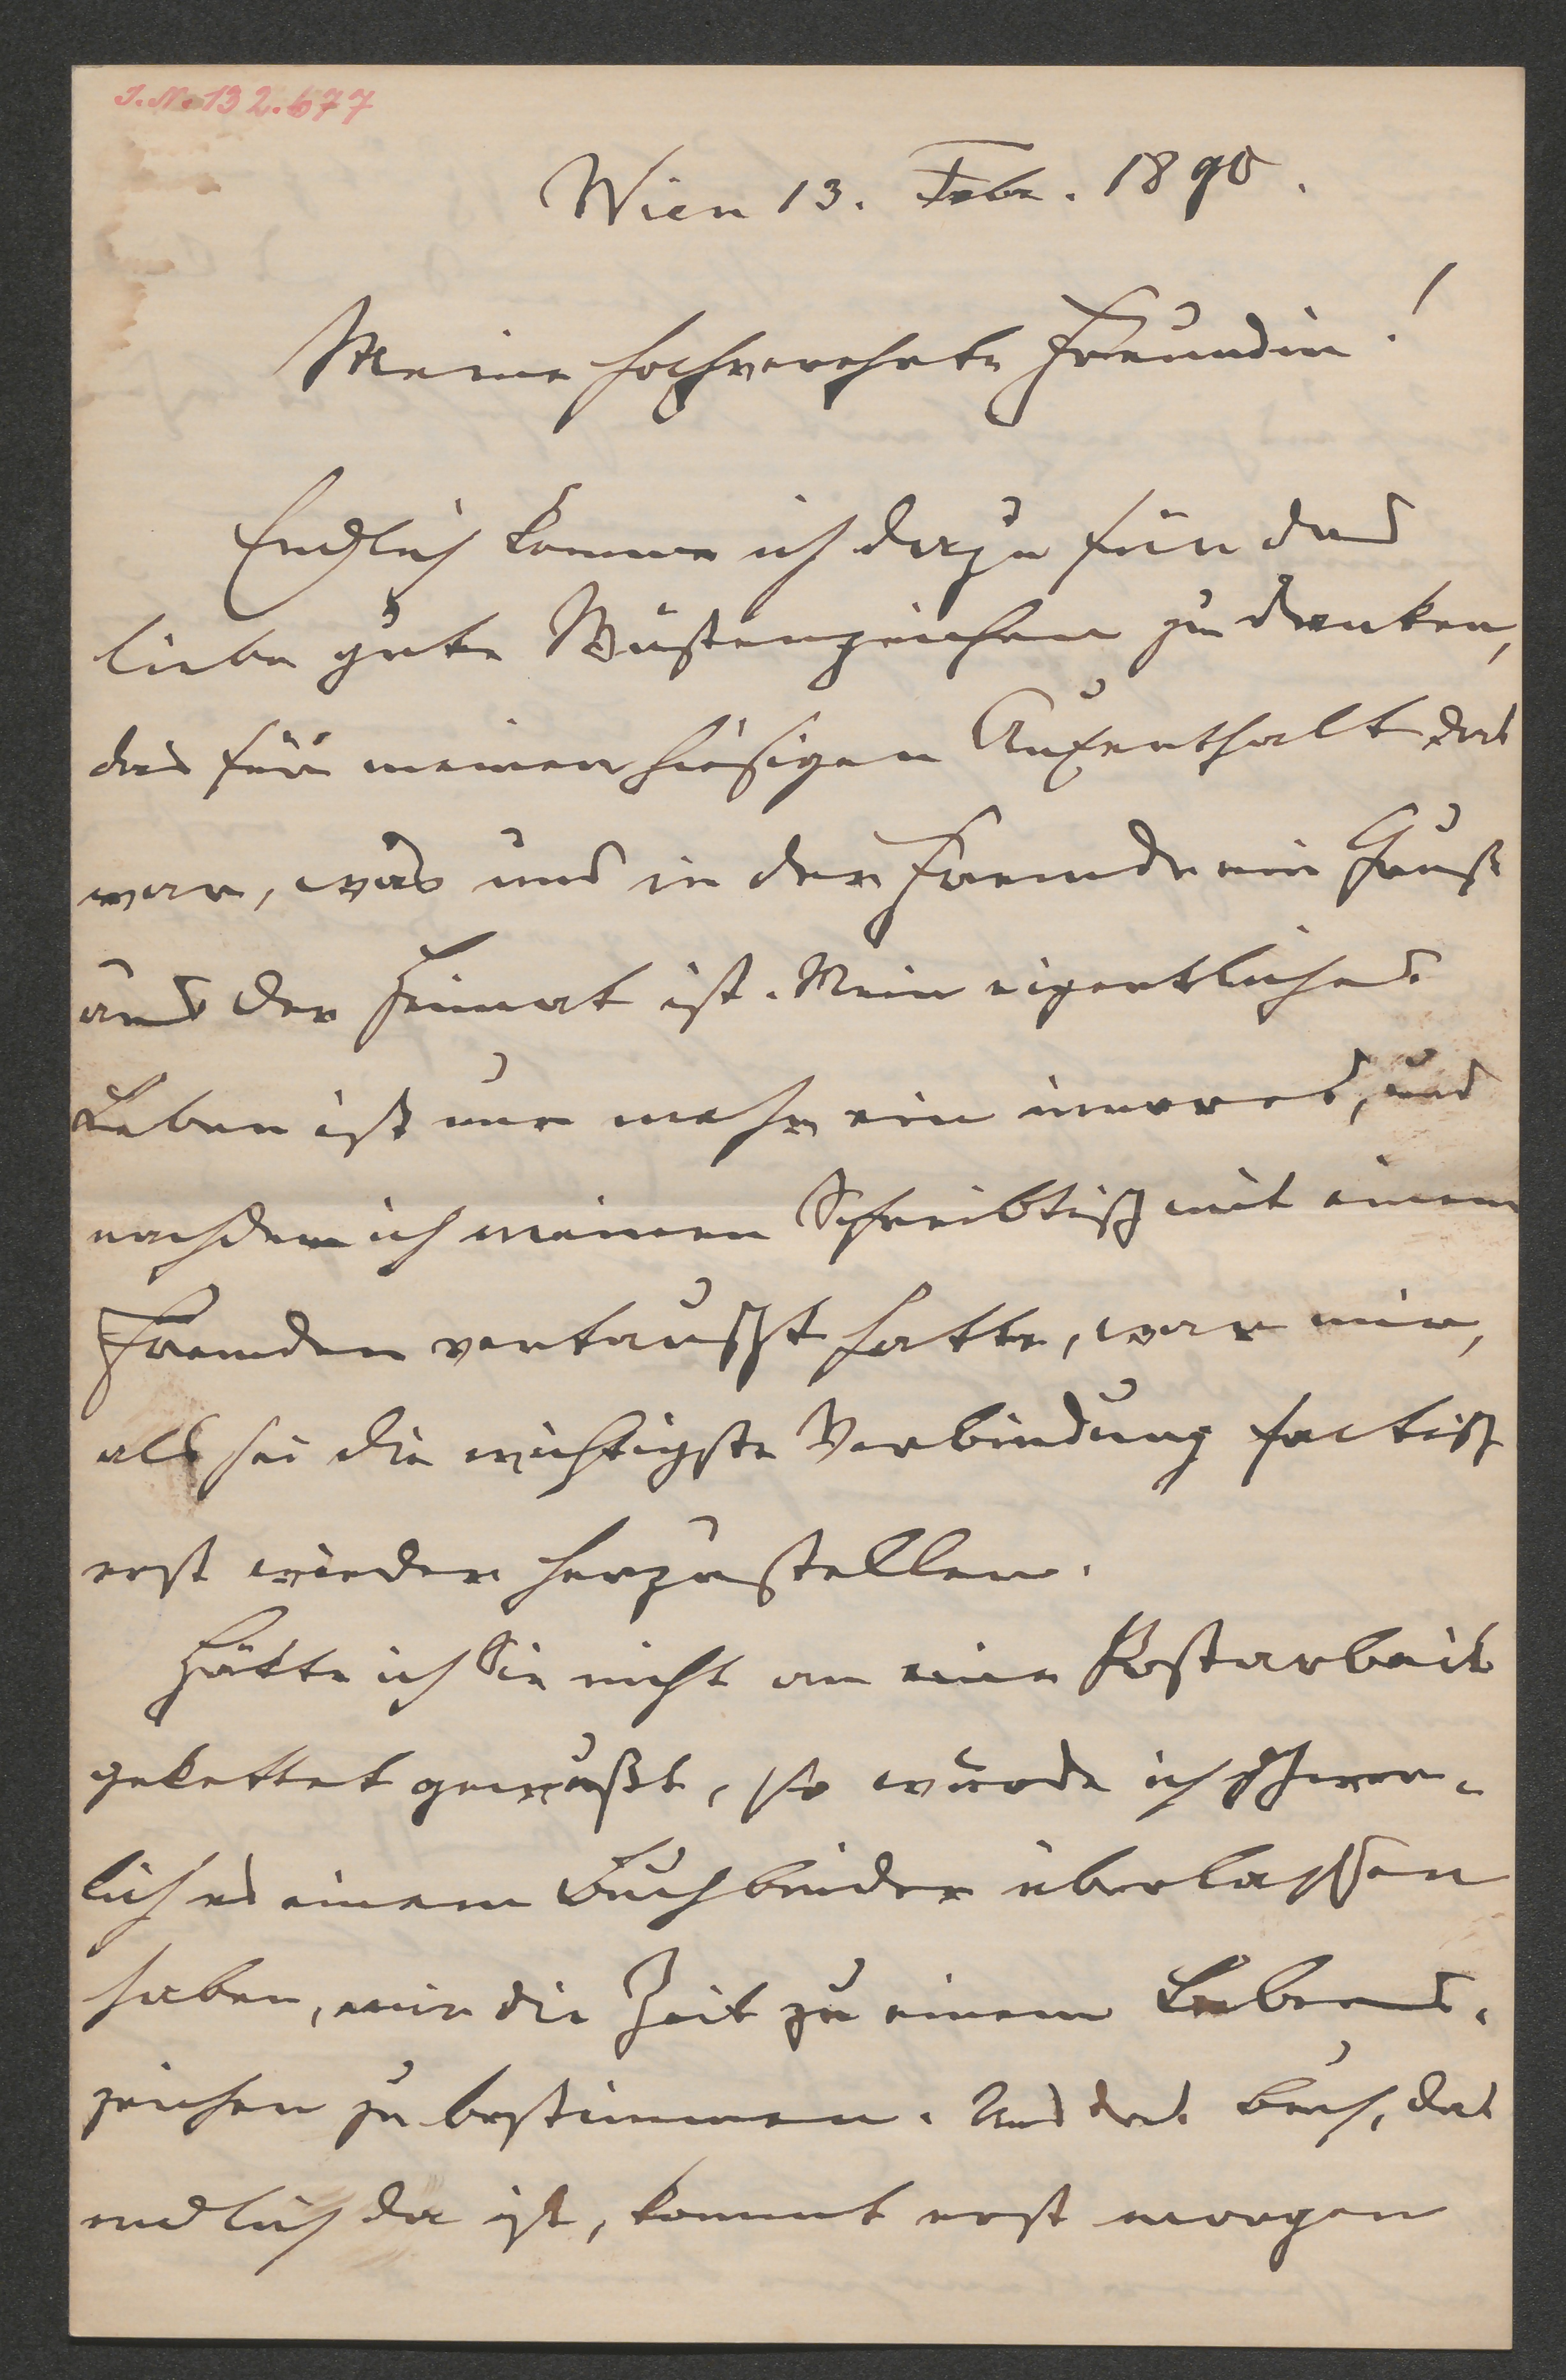 J.N. 132.677
Wien 13. Febr. 1890.
Meine hochverehrte Freundin!
Endlich komme ich dazu für das
liebe gute Wüstenzeichen zu danken,
das für meinen hiesigen Aufenthalt das
war, was uns in der Fremde ein Gruß
aus der Heimat ist. Mein eigentliches
Leben ist nur mehr ein inneres, und
nachdem ich meinen Schreibtisch mit einem
Fremden vertauscht hatte, war mir,
als sei die wichtigste Verbindung factisch
erst wieder herzustellen.
Hätte ich Sie nicht an eine Postarbeit
gekettet gewußt, so würde ich schwer-
lich es einem Buchbinder überlassen
haben, mir die Zeit zu einem Lebens-
zeichen zu bestimmen. Und das Buch, das
endlich da ist, kommt erst morgen